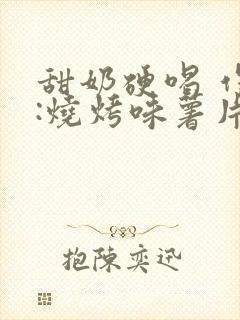 甜奶硬唱
:燒烤味薯片
抱陳奕迅